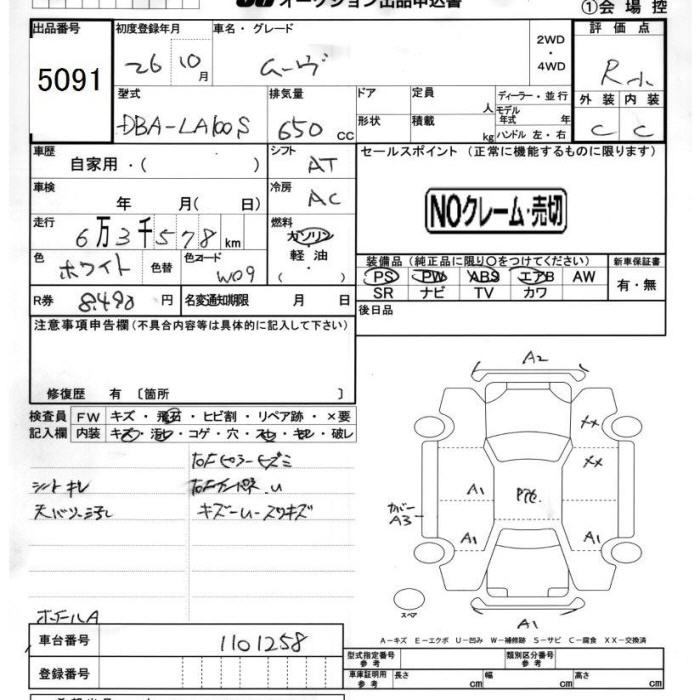 オークション出品申込書
①会場控
出品番号 初度登録年月 車名・グレード 評価点
5091 26 10月 ムーヴ 2WD・4WD R小
型式 排気量 ドア 定員 ディーラー・並行 外装 内装
DBA-LA100S 650cc 形状 積載 人 kg モデル年式 年 ハンドル 左・右 C C
車歴 自家用・( ) シフト AT セールスポイント (正常に機能するものに限ります)
車検 年 月( 日) 冷房 AC
NOクレーム・売切
走行 6万3千578km 燃料 ガソリン 軽油・( )
色 ホワイト 色替 色コード W09
装備品(純正品に限り○をつけてください) 新車保証書
PS PW ABS エアB AW 有・無
SR ナビ TV カワ
R券 8,490円 名変通知期限 月 日
後日品
注意事項申告欄(不具合内容等は具体的に記入して下さい)
修復歴 有 〔箇所 〕
検査員 FW キズ・飛石・ヒビ割・リペア跡・×要
記入欄 内装 キズ・汚レ・コゲ・穴・スレ・キレ・破レ
シートキレ
キズ
ホイールA
A2
XX
XX
A1
カバー
A3
A1
A1
A1
スペア
A-キズ E-エクボ U-凹み W-補修跡 S-サビ C-腐食 XX-交換済
車台番号 1101258
登録番号
型式指定番号 参考 類別区分番号 参考
車庫証明用 参考 長さ cm 幅 cm 高さ cm